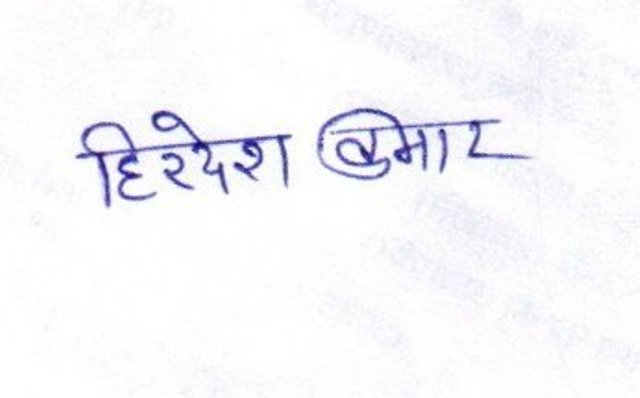 हिरदेश कुमार